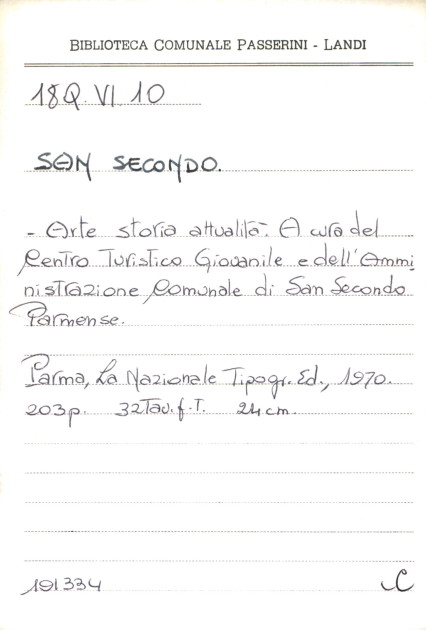 BIBLIOTECA COMUNALE PASSERINI - LANDI
18Q. VI. 10
SAN SECONDO.
- Arte storia attualità. A cura del
Centro Turistico Giovanile e dell'Ammi
nistrazione Comunale di San Secondo
Parmense.
Parma, La Nazionale Tipogr. Ed., 1970.
203p. 32Tav.f.T. 24cm.
191334
C